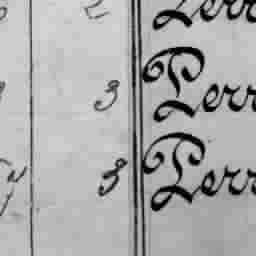 2 Perr
3 Perr
3 Perr